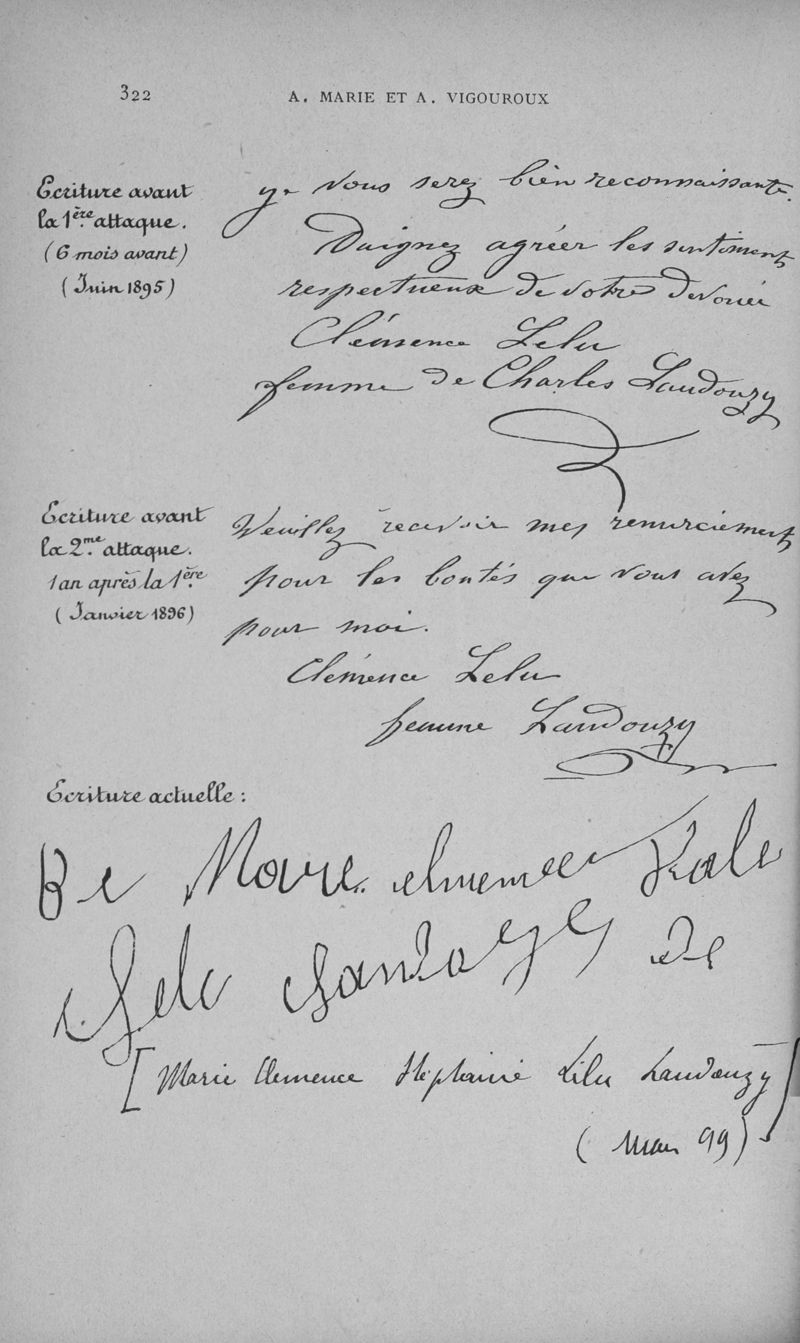 322
A. MARIE ET A. VIGOUROUX
Ecriture avant
la 1ère attaque.
(6 mois avant)
(Juin 1895)
je vous serez bien reconnaissante.
Daignez agréer les sentiment
respectueux de votre devouée
Clémence Lelu
femme de Charles Landouzy
Ecriture avant
la 2me attaque.
1 an après la 1ère
(Janvier 1896)
Veuillez recevoir mes remerciement
pour les bontés que vous avez
pour moi.
Clémence Lelu
femme Landouzy
Ecriture actuelle :
Marie
Lelu Landozy de
[Marie Clemence Stéphanie Lelu Landouzy]
(Mars 99)